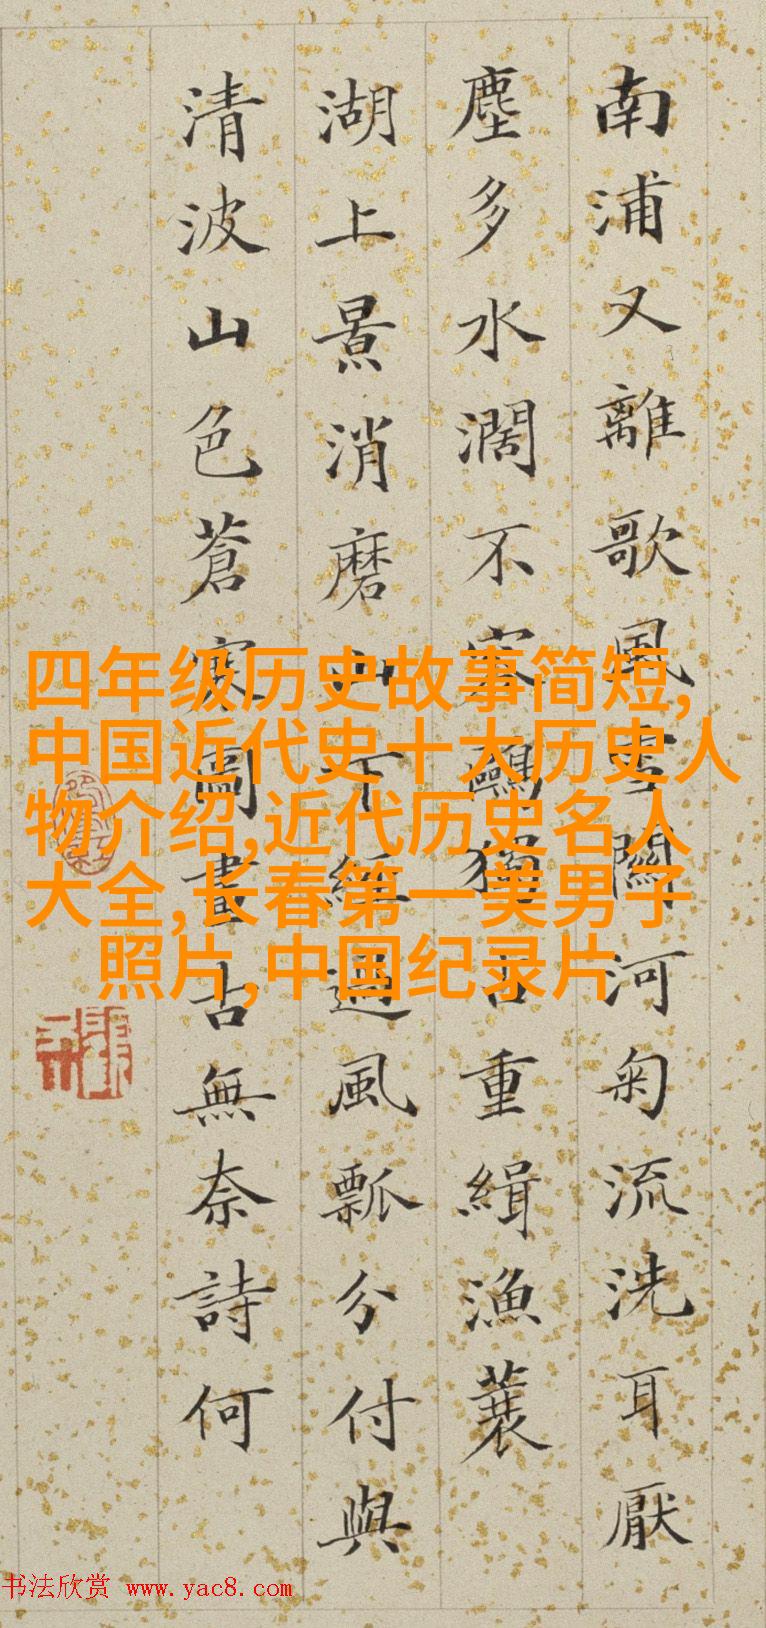 南浦又離歌風雪關河匊流洗耳厭
塵多水濶不容鷗獨占重緝漁蓑
湖上景消磨山下經過風瓢分付與
清波山色蒼寒圖畫古無奈詩何
四年级历史故事简短,
中国近代史十大历史人
物介绍,近代历史名人
大全,长春第一美男子
照片,中国纪录片
书法欣赏 www.yac8.com